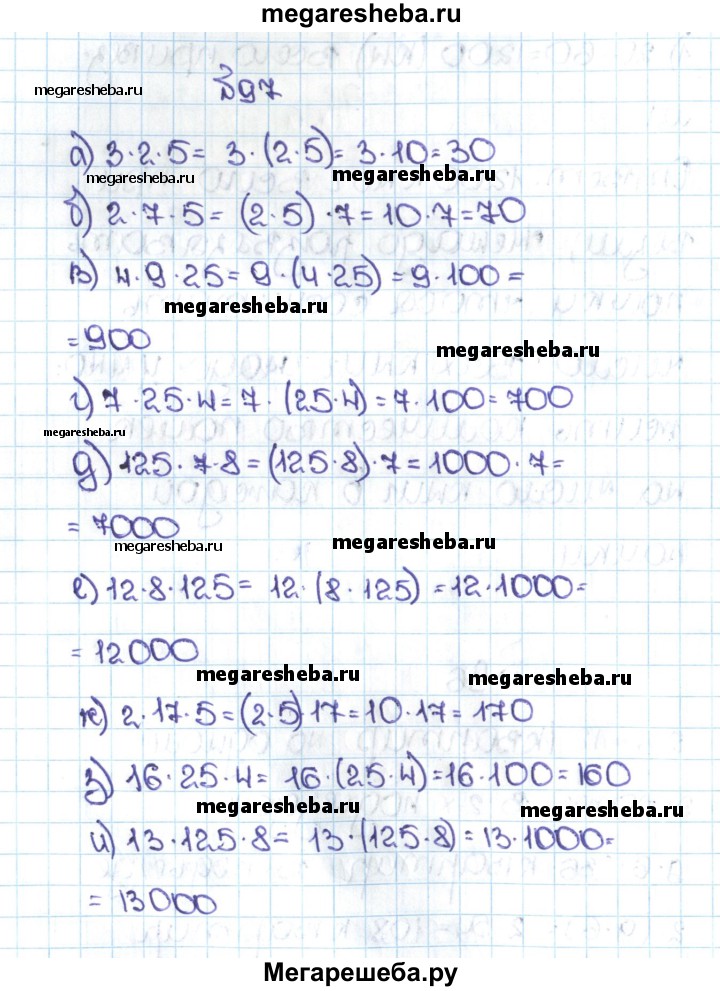 megaresheba.ru
megaresheba.ru
№97
а) 3·2·5= 3·(2·5)= 3·10=30
megaresheba.ru
megaresheba.ru
б) 2·7·5= (2·5)·7=10·7=70
в) 4·9·25= 9·(4·25)=9·100=
megaresheba.ru
=900
megaresheba.ru
г) 7·25·4=7·(25·4)=7·100=700
megaresheba.ru
д) 125·7·8=(125·8)·7=1000·7=
=7000
megaresheba.ru
megaresheba.ru
е) 12·8·125= 12·(8·125)=12·1000=
=12000
megaresheba.ru
megaresheba.ru
ж) 2·17·5=(2·5)17=10·17=170
з) 16·25·4= 16·(25·4)=16·100=160
megaresheba.ru
megaresheba.ru
и) 13·125·8= 13·(125·8)=13·1000=
=13000
Мегарешеба.ру